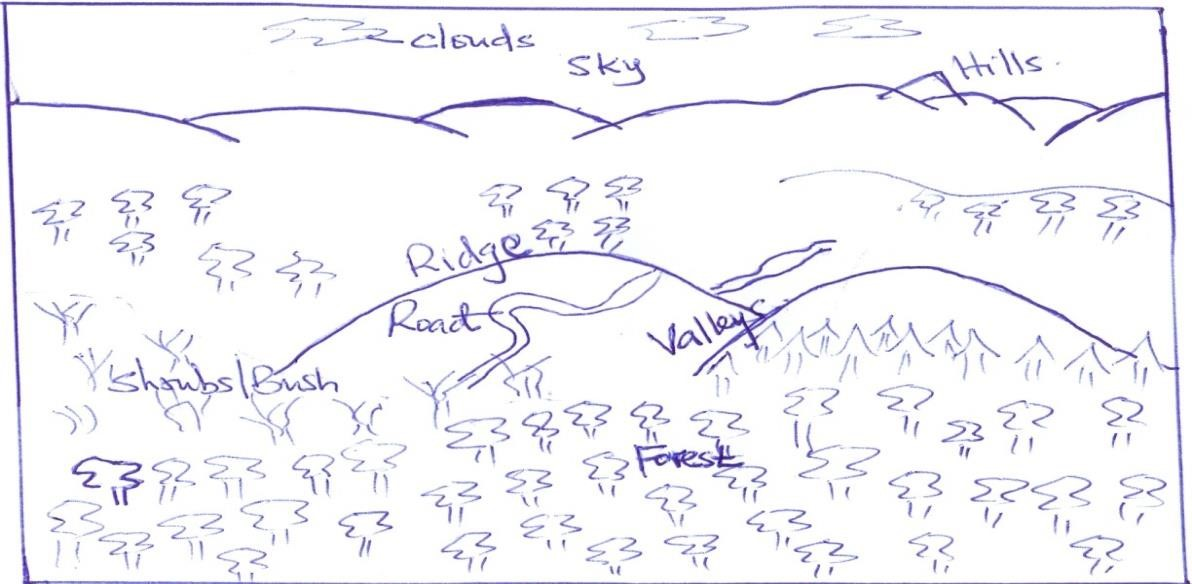 clouds
Sky
Hills.
Ridge
Road
Valleys
Shrubs/Bush
Forest